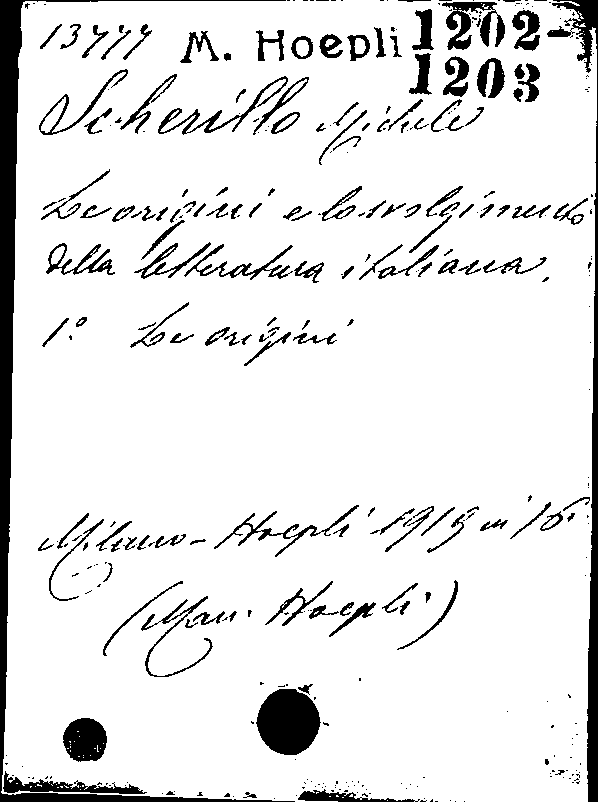 13777 M. Hoepli 1202-
1203
Scherillo Michele
Le origini e lo svolgimento
della letteratura italiana.
1° Le origini
Milano - Hoepli 1919 in 16.
(Man. Hoepli)